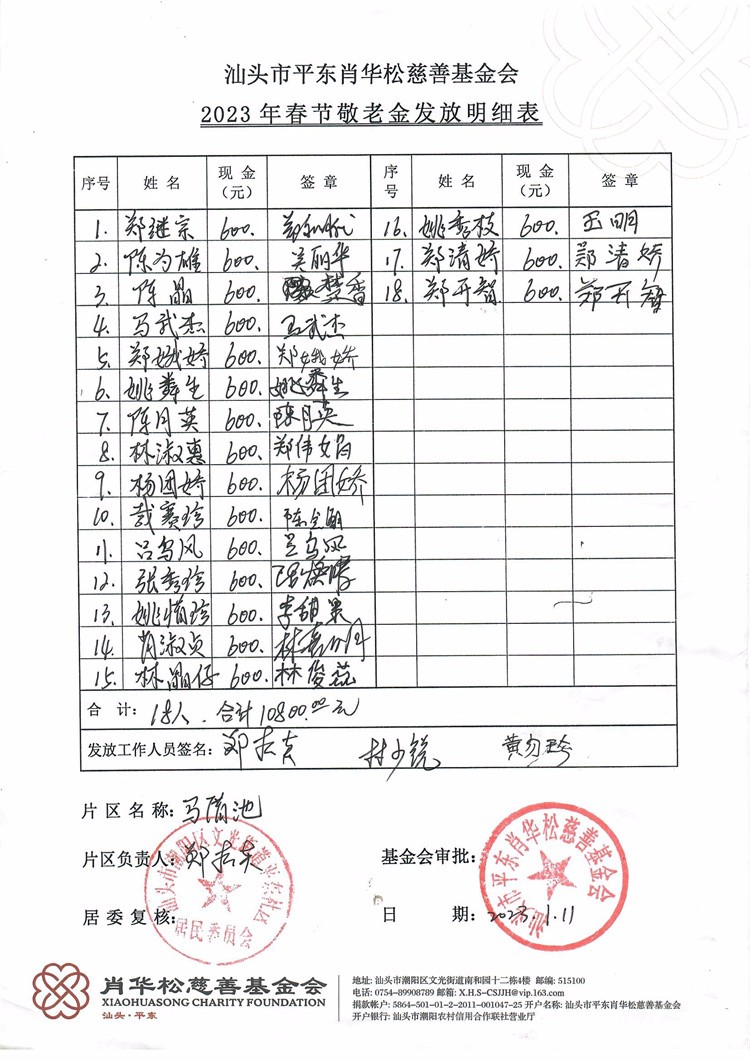 汕头市平东肖华松慈善基金会
2023 年春节敬老金发放明细表
序号 姓 名 现 金（元） 签 章 序号 姓 名 现 金（元） 签 章
1. 郑继宗 600. 16. 姚秀枝 600. 玉明
2. 陈为雄 600. 吴丽华 17. 郑清娇 600. 郑清娇
3. 陈晶 600. 楚香 18. 郑开智 600. 郑开智
4. 马武杰 600. 马武杰
5. 郑娥娇 600. 郑娥娇
6. 姚舜生 600. 姚舜生
7. 陈月英 600. 陈月英
8. 林淑惠 600. 郑伟女
9. 杨团娇 600. 杨团娇
10. 赛珍 600. 陈
11. 吕乌凤 600. 吕乌凤
12. 张秀珍 600.
13. 姚惜珍 600. 李甜果
14. 肖淑贞 600. 林
15. 林潮仔 600. 林俊
合 计： 18人. 合计10800.00元
发放工作人员签名： 林少锐
片 区 名 称： 马 池
片区负责人： 郑 基金会审批：
居 委 复 核： 日 期： 2023.1.11
汕头市潮阳区文光街道平东社区
居民委员会
汕头市平东肖华松慈善基金会
肖华松慈善基金会
XIAOHUASONG CHARITY FOUNDATION
汕头·平东
地址: 汕头市潮阳区文光街道南和园十二栋4楼 邮编: 515100
电话: 0754-89908789 邮箱: X.H.S-CSJJH@vip.163.com
捐款帐户: 5864-501-01-2-2011-001047-25 开户名称: 汕头市平东肖华松慈善基金会
开户银行: 汕头市潮阳农村信用合作联社营业厅